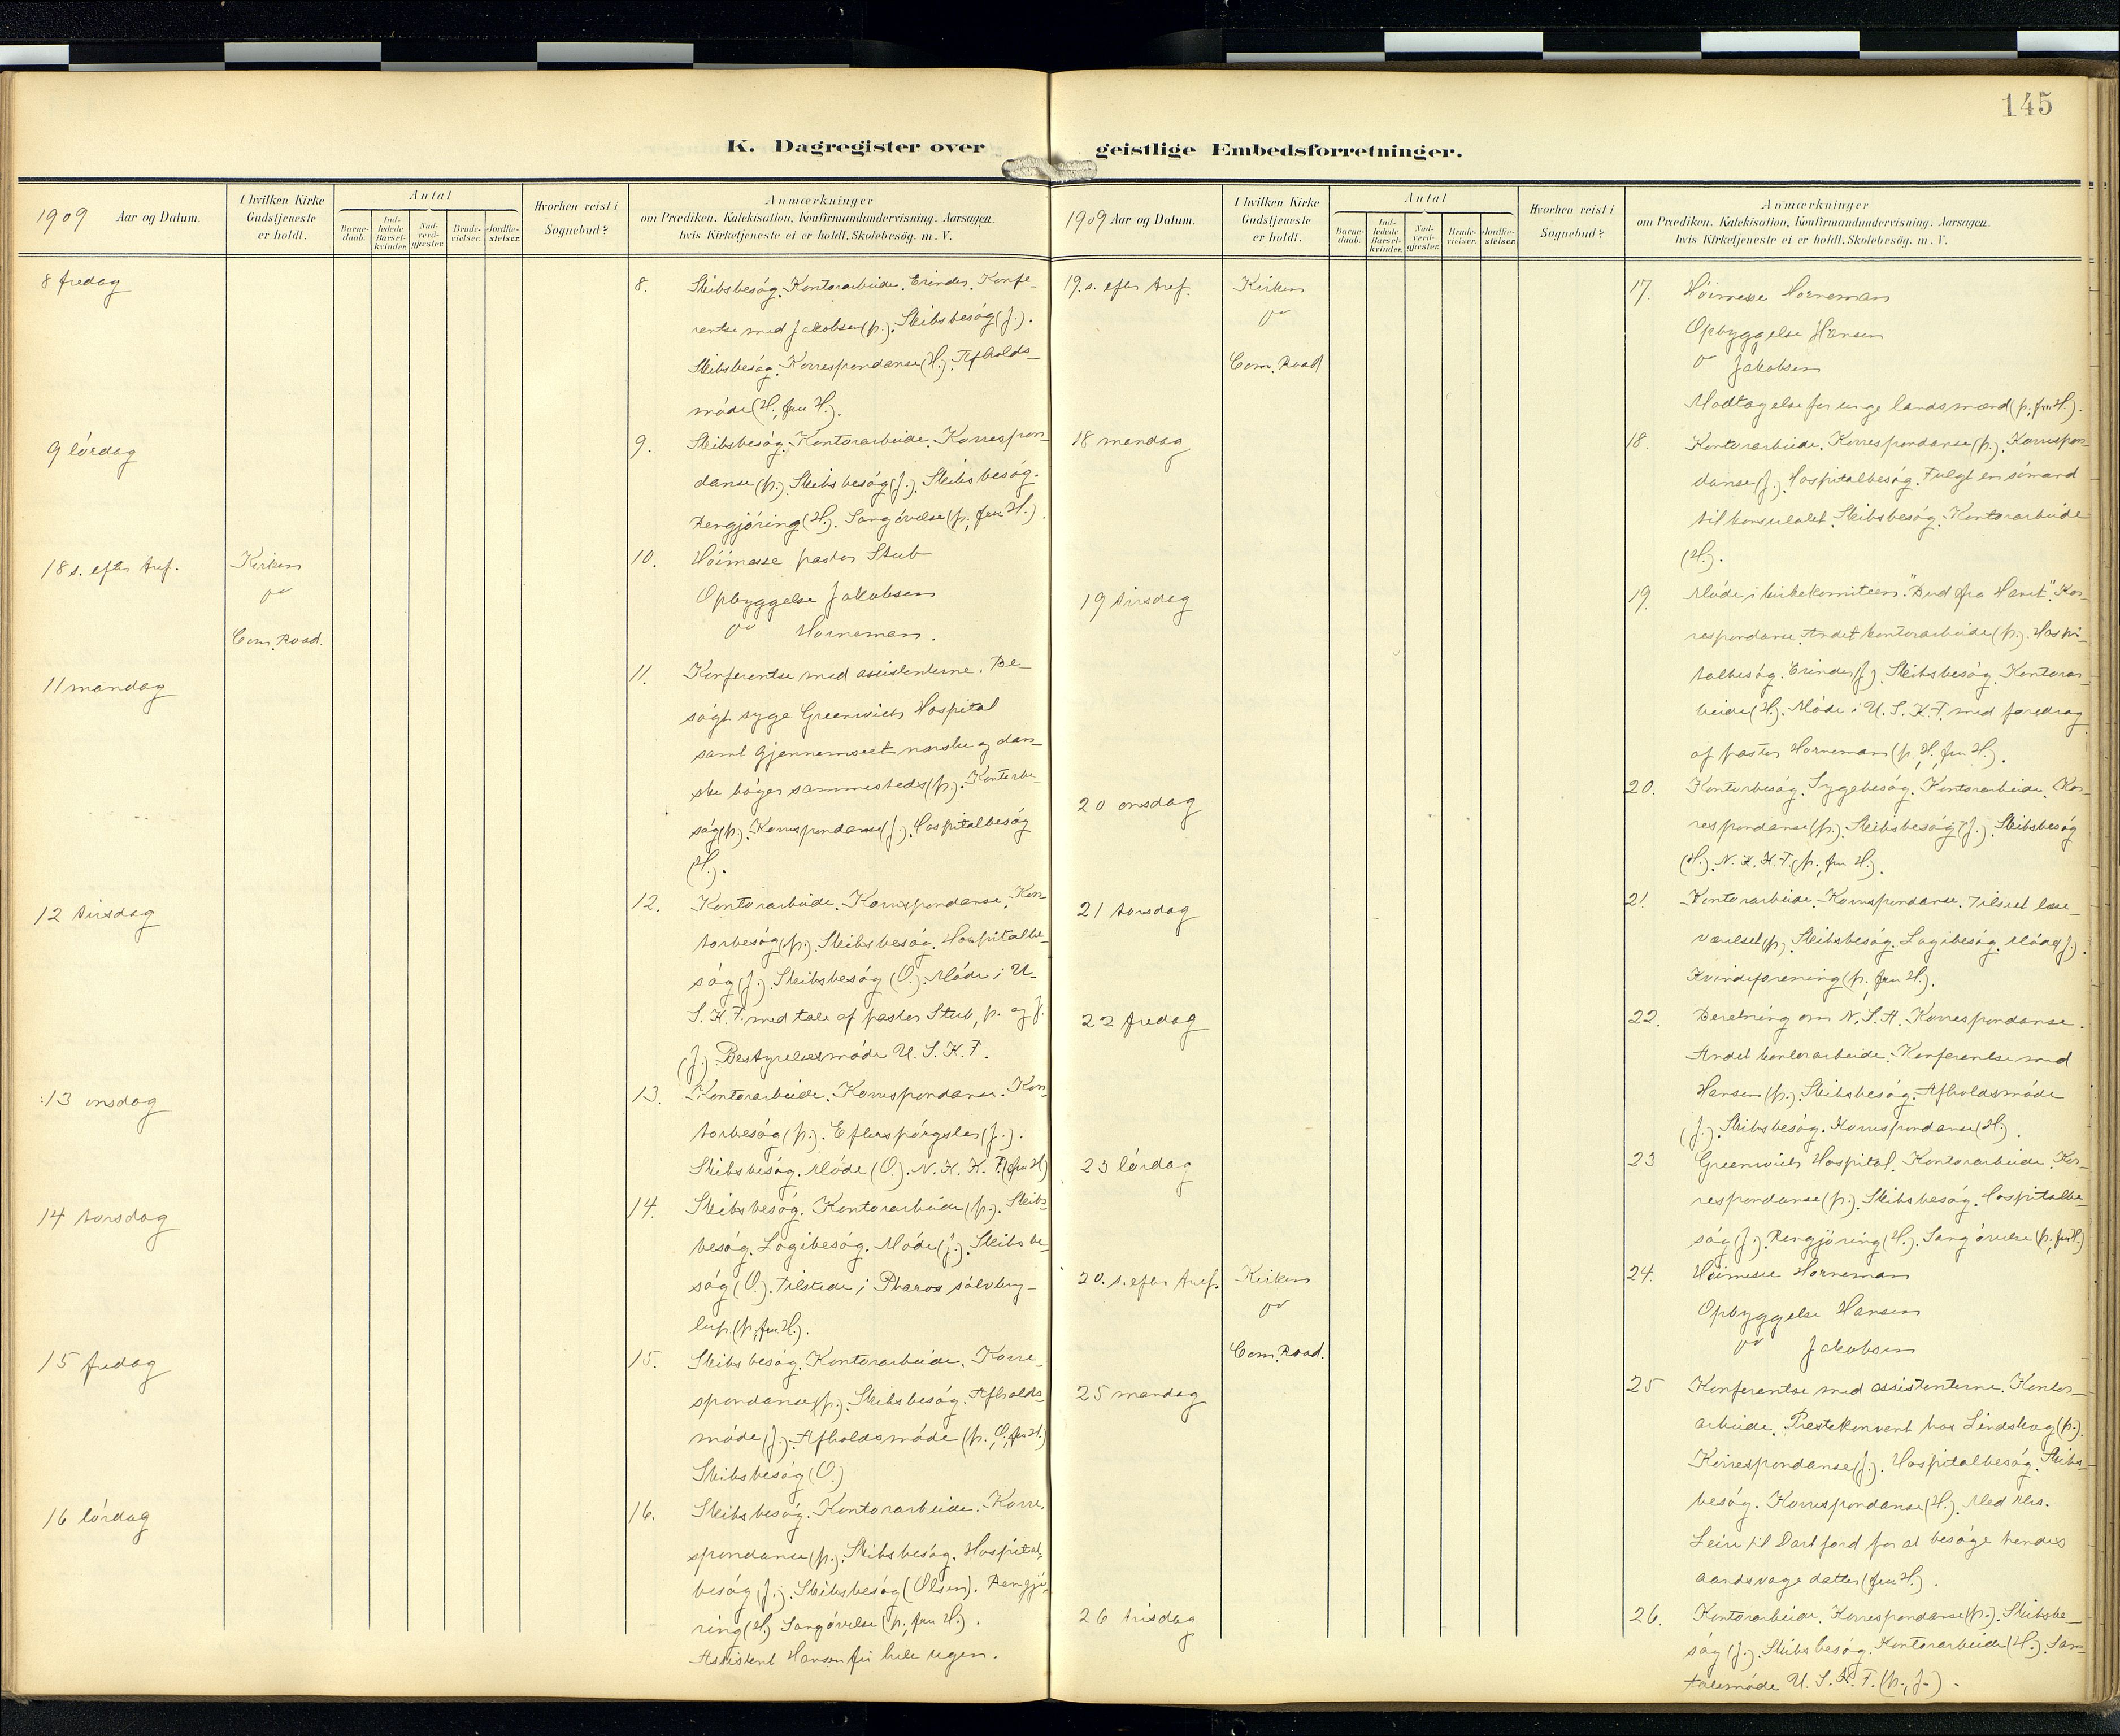 145
K. Dagregister over geistlige Embedsforretninger.
1909 Aar og Datum.
I hvilken Kirke Gudstjeneste er holdt.
Antal
Barnedaab.
Indledede Barselkvinder.
Nadverdgjester.
Brudevielser.
Jordfæstelser.
Hvorhen reist i Sognebud?
Anmærkninger
om Prædiken, Katekisation, Konfirmandundervisning. Aarsagen,
hvis Kirketjeneste ei er holdt. Skolebesög. m. V.
8 fredag
8. Skibsbesög. Kontorarbeide. Erinder. Konfe-
rentse med Jakobsen (p.). Skibsbesög (J.).
Skibsbesög. Korrespondanse (H.). Afholds-
möde (H., fru H.).
9 lördag
9. Skibsbesög. Kontorarbeide. Korrespon-
danse (p.). Skibsbesög (J.). Skibsbesög.
Rengjöring (H.). Sangövelse (p., fru H.).
18 s. efter tref.
Kirken
do
Com. Road.
10. Höimesse pastor Stub
Opbyggelse Jakobsen
do Horneman.
11 mandag
11. Konferentse med assistenterne. Be-
sögt syge Greenwich Hospital
samt gjennemseet norske og dan-
ske böger sammesteds (p.). Kontorbe-
sög (p.). Korrespondanse (J.). Hospitalbesög
(H.).
12 tirsdag
12. Kontorarbeide. Korrespondanse. Kon-
torbesög (p.). Skibsbesög. Hospitalbe-
sög (J.). Skibsbesög (O.). Möde i U.
S. K. F. med tale af pastor Stub, p. og J.
(J.). Bestyrelsesmöde U. S. K. F.
13 onsdag
13. Kontorarbeide. Korrespondanse. Kon-
torbesög (p.). Efterspörgsler (J.).
Skibsbesög. Möde (O.). N. K. K. F. (fru H)
14 torsdag
14. Skibsbesög. Kontorarbeide (p.). Skibs-
besög. Logibesög. Möde (J.). Skibsbe-
sög (O.). Tilstede i Pharos sölvbryl-
lup. (p., fru H.).
15 fredag
15. Skibsbesög. Kontorarbeide. Korre-
spondanse (p.). Skibsbesög. Afholds-
möde (J.). Afholdsmöde (p., O., fru H.)
Skibsbesög (O.)
16 lördag
16. Skibsbesög. Kontorarbeide. Korre-
spondanse (p.). Skibsbesög. Hospital-
besög (J.). Skibsbesög (Olsen). Rengjö-
ring (H.) Sangövelse (p., fru H.).
Assistent Hansen fri hele ugen.
1909 Aar og Datum.
I hvilken Kirke Gudstjeneste er holdt.
Antal
Barnedaab.
Indledede Barselkvinder.
Nadverdgjester.
Brudevielser.
Jordfæstelser.
Hvorhen reist i Sognebud?
Anmærkninger
om Prædiken, Katekisation, Konfirmandundervisning. Aarsagen,
hvis Kirketjeneste ei er holdt. Skolebesög. m. V.
19. s. efter tref.
Kirken
do
Com. Road
17. Höimesse Horneman
Opbyggelse Hansen
do Jakobsen
Modtagelse for unge landsmænd (p., fru H.).
18 mandag
18. Kontorarbeide. Korrespondanse (p.). Korrespon-
danse (J.). Hospitalbesög. Fulgt en sömand
til konsulatet. Skibsbesög. Kontorarbeide
(H.).
19 tirsdag
19. Möde i kirkekomiteen. "Bud fra Havet". Kor-
respondanse. Andet kontorarbeide (p.). Hospi-
talbesög. Erinder (J.) Skibsbesög. Kontorar-
beide (H.). Möde i U. S. K. F. med foredrag
af pastor Horneman (p., H., fru H.).
20 onsdag
20. Kontorbesög. Sygebesög. Kontorarbeide. Kor-
respondanse (p.). Skibsbesög (J.). Skibsbesög
(H.). N. K. K. F. (p., fru H.).
21 torsdag
21. Kontorarbeide. Korrespondanse. Tilseet læse-
værelset (p.). Skibsbesög. Logibesög. Möde (J.).
Kvindeforening (p., fru H.).
22 fredag
22. Beretning om N. S. A. Korrespondanse.
Andet kontorarbeide. Konferentse med
Hansen (p.). Skibsbesög. Afholdsmöde
(J.). Skibsbesög. Korrespondanse (H.).
23 lördag
23 Greenwich Hospital. Kontorarbeide. Kor-
respondanse (p.). Skibsbesög. Hospitalbe-
sög (J.). Rengjöring (H.). Sangövelse (p., fru H.)
20. s. efter tref.
Kirken
do
Com. Road.
24. Höimesse Horneman
Opbyggelse Hansen
do Jakobsen
25 mandag
25 Konferentse med assistenterne. Kontor-
arbeide. Prestekonvent hos Lindskog (p.).
Korrespondanse (J.). Hospitalbesög. Skibs-
besög. Korrespondanse (H.). Med Mrs.
Leire til Dartford for at besöge hendes
aandsvage datter (fru H.).
26 tirsdag
26. Kontorarbeide. Korrespondanse (p.). Skibsbe-
sög (J.). Skibsbesög. Kontorarbeide (H.). Sam-
talemöde U. S. K. F. (p., J.).